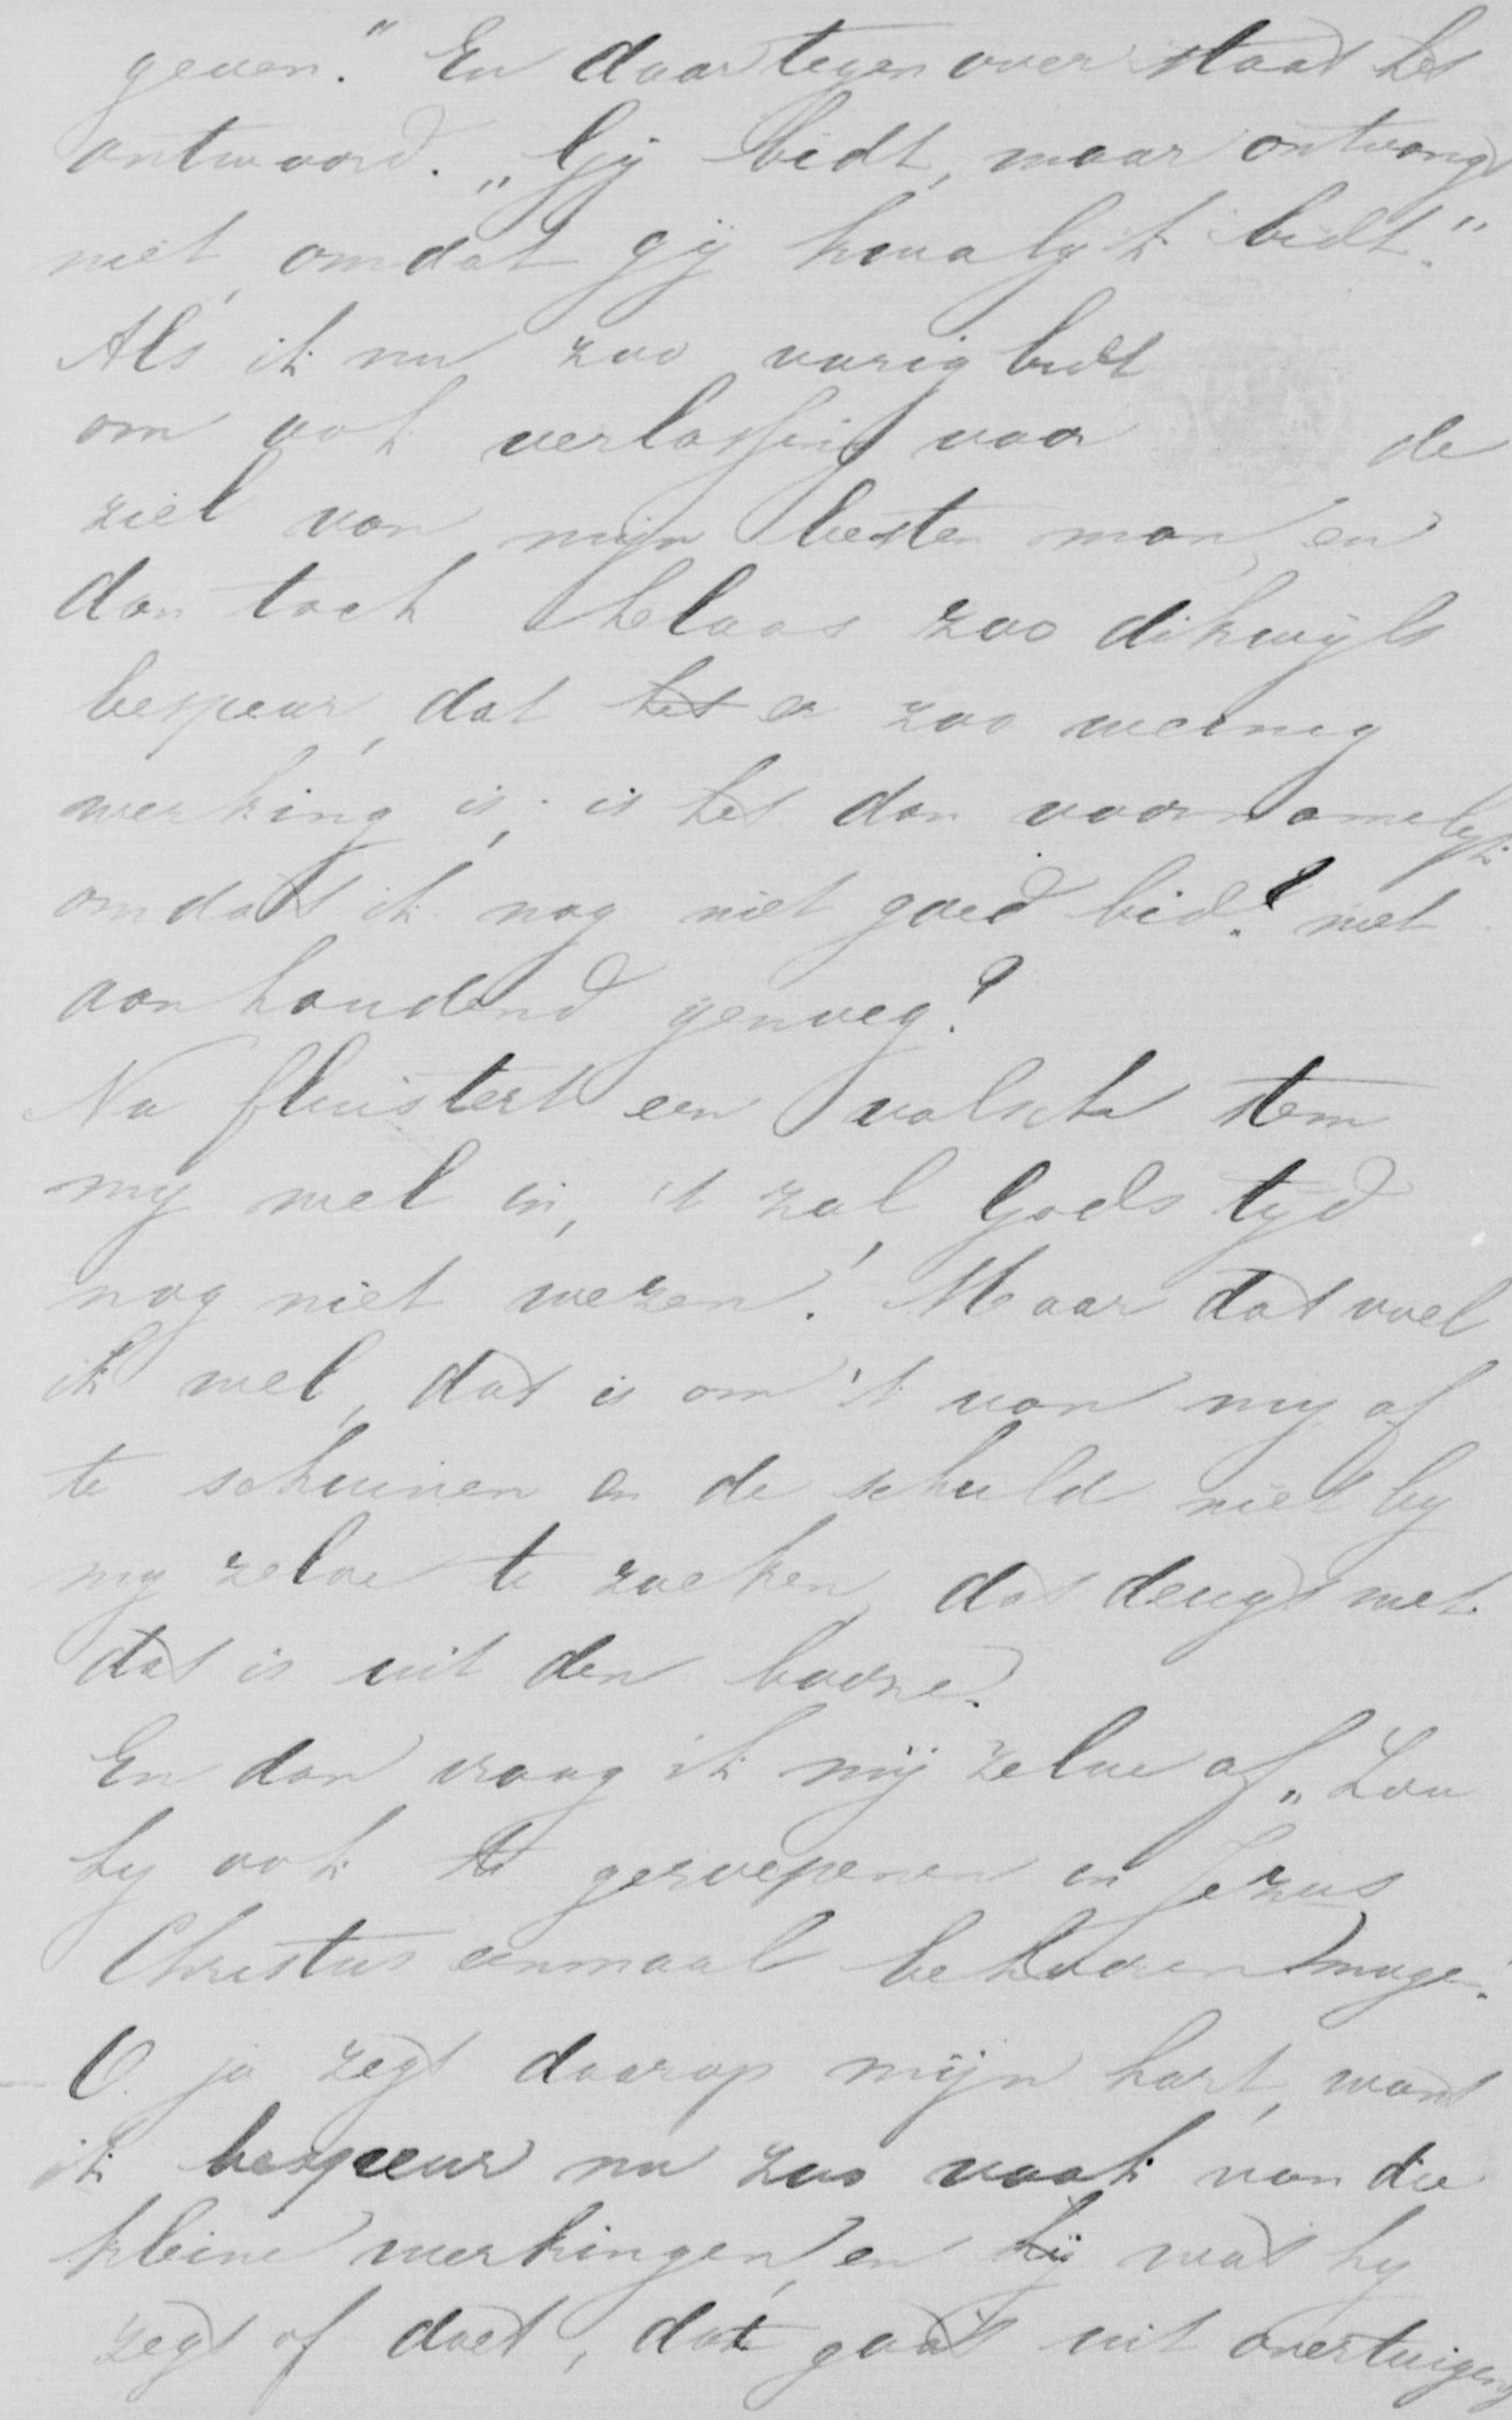 geven." En daartegenover staat het
antwoord. „Gij bidt, maar ontvangt
niet, omdat gij kwalyk bidt."
Als ik nu zoo vurig bidt
om ook verlossing voor de
ziel van mijn besten man, en
dan toch helaas zoo dikwijls
bespeur, dat het er zoo weinig
werking is, is het dan voornamelyk
omdat ik nog niet goed bid? niet
aanhoudend genoeg?
Nu fluistert een valsche stem
my wel in, 't zal Gods tyd
nog niet wezen! Maar dat voel
ik wel, dat is om 't van my af
te schuiven en de schuld niet by
my zelve te zoeken, dat deugt niet.
dat is uit den booze.
En dan vraag ik mij zelve af, „Zou
hy ook te geroepenen in Jezus
Christus eenmaal behooren mogen.
O. ja zegt daarop mijn hart, want
ik bespeur nu zoo vaak van die
kleine werkingen, en hij wat hy
zegt of doet, dat gaat uit overtuiging